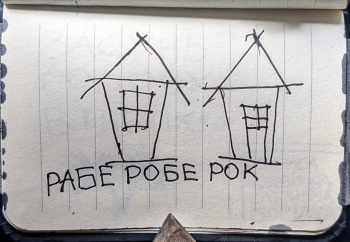 РАБЕ РОБЕ РОК